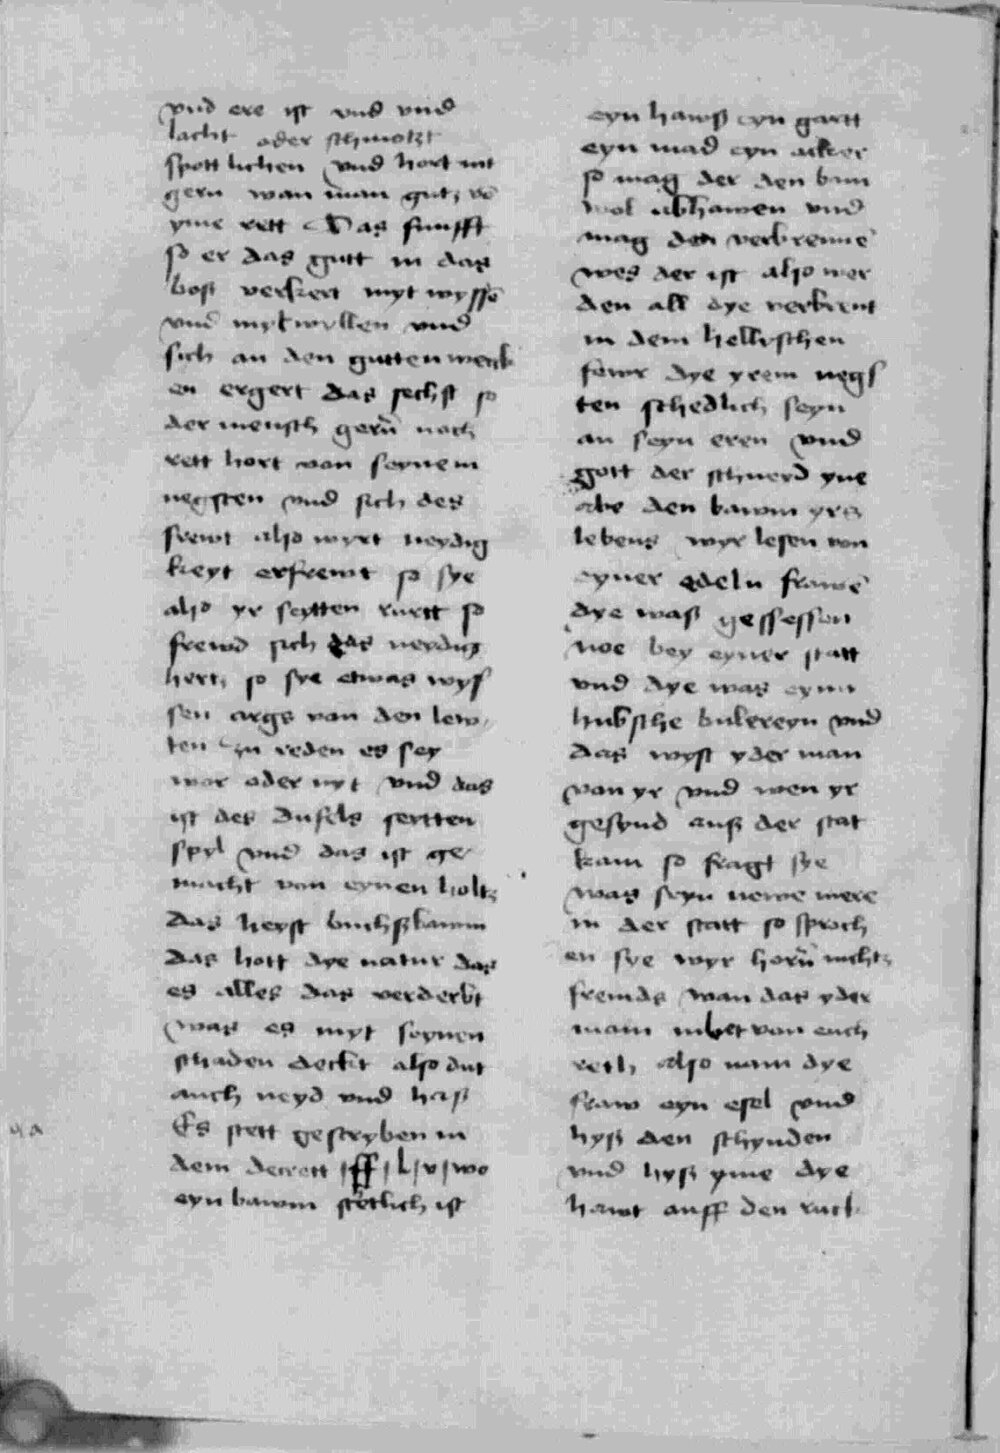 vnd ere ist vnd vnd
lacht oder schmotzt
spottlichen vnd hort nit
gern wan man gutz vō
yme rett Das funfft
so er das gutt in das
boß verkert myt wyssē
vnd mytwyllen vnd
sich an den gutten werck
en ergert das sechst so
der mensch gerñ noch
rett hort von seynem
negsten vnd sich des
frewt also wyrt neydig
keyt erfrewt so sye
also yr seytten rurtt so
frewd sich das neydig
hertz so sye etwas wyß
sen args von den lew
ten zu reden es sey
wor oder nyt vnd das
ist des dufels seytten
spyl vnd das ist ge
macht von eynen holtz
das heyst buchßbawm
das hott dye natur das
es alles das verderbt
was es myt seynen
schaden deckt also dut
auch neyd vnd haß
Es stett gescryben in
dem decrett ff l v wo
eyn bawm schetlich ist
eyn hawß eyn gartt
eyn mad eyn acker
so mag der den bam
wol abhawen vnd
mag den verbrennē
wes der ist also wer
den all dye verbrent
in dem hellyschen
fewr dye yrem negs
ten schedlich seyn
an seyn eren vnd
gott der schnerd yne
abe den bawm yrs
lebens wyr lesen von
eyner edeln frawē
dye waß gessessen
noe bey eyner statt
vnd dye was eynn
hubsche bulereyn vnd
das wyst yder man
von yr vnd wen yr
gesynd auß der stat
kam so fragt sye
was seyn newe mere
in der statt so sproch
en sye wyr horñ nichtz
fremds wan das yder
mam vbel von euch
reth also nam dye
fraw eyn esel vnd
hyß den schynden
vnd hyß yme dye
hawt auff den ruck